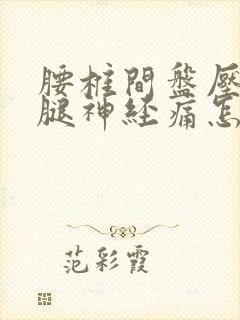 腰椎間盤壓
腿神経痛怎
范彩霞